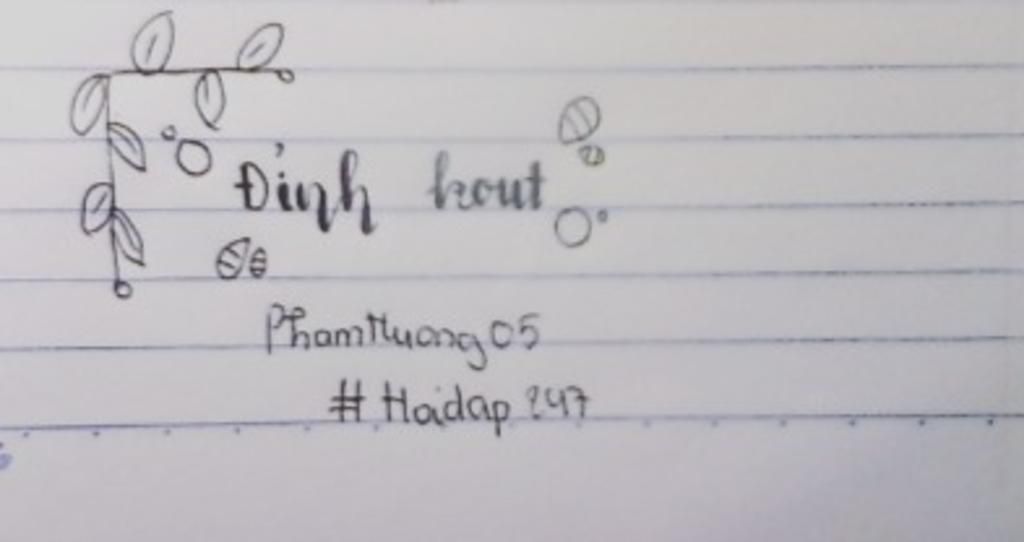 Đỉnh kout
PhamHuong05
# Hoidap 247